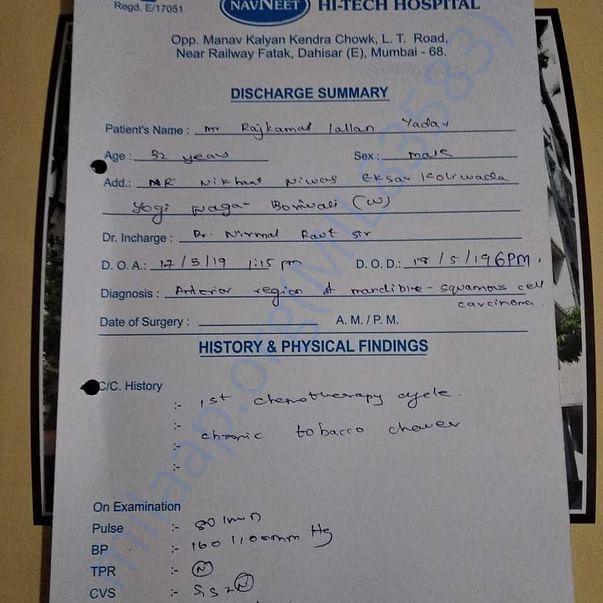 Regd. E/17051 NAVNEET HI-TECH HOSPITAL
Opp. Manav Kalyan Kendra Chowk, L. T. Road,
Near Railway Fatak, Dahisar (E), Mumbai - 68.
DISCHARGE SUMMARY
Patient's Name : Mr. Rajkamal Lallan Yadav
Age : 32 years Sex : male
Add.: NR Nikhant Niwas Eksar Koliwada
Yogi Naga- Borivali (W)
Dr. Incharge : Dr. Nirmal Raut Sir
D. O. A.: 17/5/19 1:15 pm D. O. D.: 18/5/19 6PM.
Diagnosis : Anterior region of mandible - squamous cell
carcinoma.
Date of Surgery : A. M. / P. M.
HISTORY & PHYSICAL FINDINGS
C/C. History
:- 1st chemotherapy cycle.
:- chronic tobacco chewer
:-
:-
On Examination
Pulse :- 80/min
BP :- 160/100mm Hg
TPR :- N
CVS :- S1S2 N
milaap.org(MILA3583)